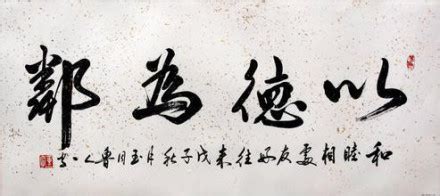 以德為鄰
和睦相處友好往来戊子秋月玉月魯人書